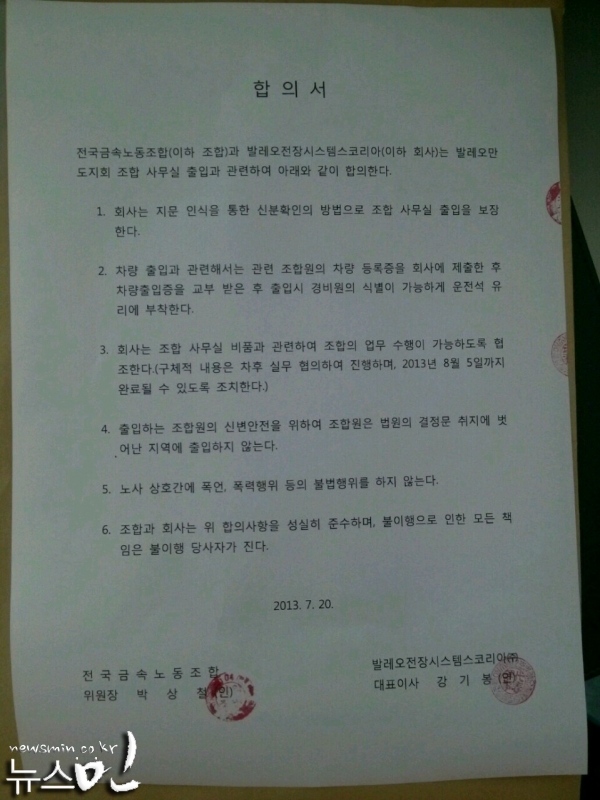 합 의 서
전국금속노동조합(이하 조합)과 발레오전장시스템스코리아(이하 회사)는 발레오만
도지회 조합 사무실 출입과 관련하여 아래와 같이 합의한다.
1. 회사는 지문 인식을 통한 신분확인의 방법으로 조합 사무실 출입을 보장
한다.
2. 차량 출입과 관련해서는 관련 조합원의 차량 등록증을 회사에 제출한 후
차량출입증을 교부 받은 후 출입시 경비원의 식별이 가능하게 운전석 유
리에 부착한다.
3. 회사는 조합 사무실 비품과 관련하여 조합의 업무 수행이 가능하도록 협
조한다.(구체적 내용은 차후 실무 협의하여 진행하며, 2013년 8월 5일까지
완료될 수 있도록 조치한다.)
4. 출입하는 조합원의 신변안전을 위하여 조합원은 법원의 결정문 취지에 벗
어난 지역에 출입하지 않는다.
5. 노사 상호간에 폭언, 폭력행위 등의 불법행위를 하지 않는다.
6. 조합과 회사는 위 합의사항을 성실히 준수하며, 불이행으로 인한 모든 책
임은 불이행 당사자가 진다.
2013. 7. 20.
전 국 금 속 노 동 조 합
위원장 박 상 철 (인)
발레오전장시스템스코리아㈜
대표이사 강 기 봉 (인)
newsmin.co.kr
뉴스민